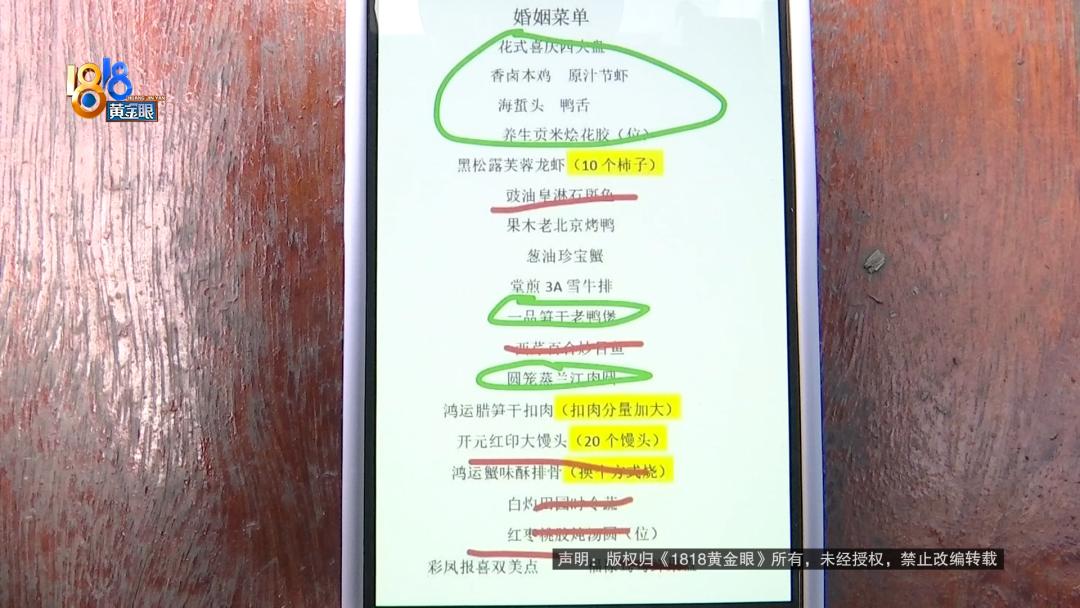 婚姻菜单
花式喜庆四大盘
香卤本鸡 原汁节虾
海蜇头 鸭舌
养生贡米烩花胶（位）
黑松露芙蓉龙虾（10 个柿子）
豉油皇淋石斑鱼
果木老北京烤鸭
葱油珍宝蟹
堂煎 3A 雪牛排
一品笋干老鸭煲
圆笼蒸兰江肉圆
鸿运腊笋干扣肉（扣肉分量加大）
开元红印大馒头（20 个馒头）
鸿运蟹味酥排骨（换个方式烧）
白灼田园时令蔬
红枣桃胶炖汤圆（位）
彩凤报喜双美点
1818
黄金眼
声明：版权归《1818黄金眼》所有，未经授权，禁止改编转载